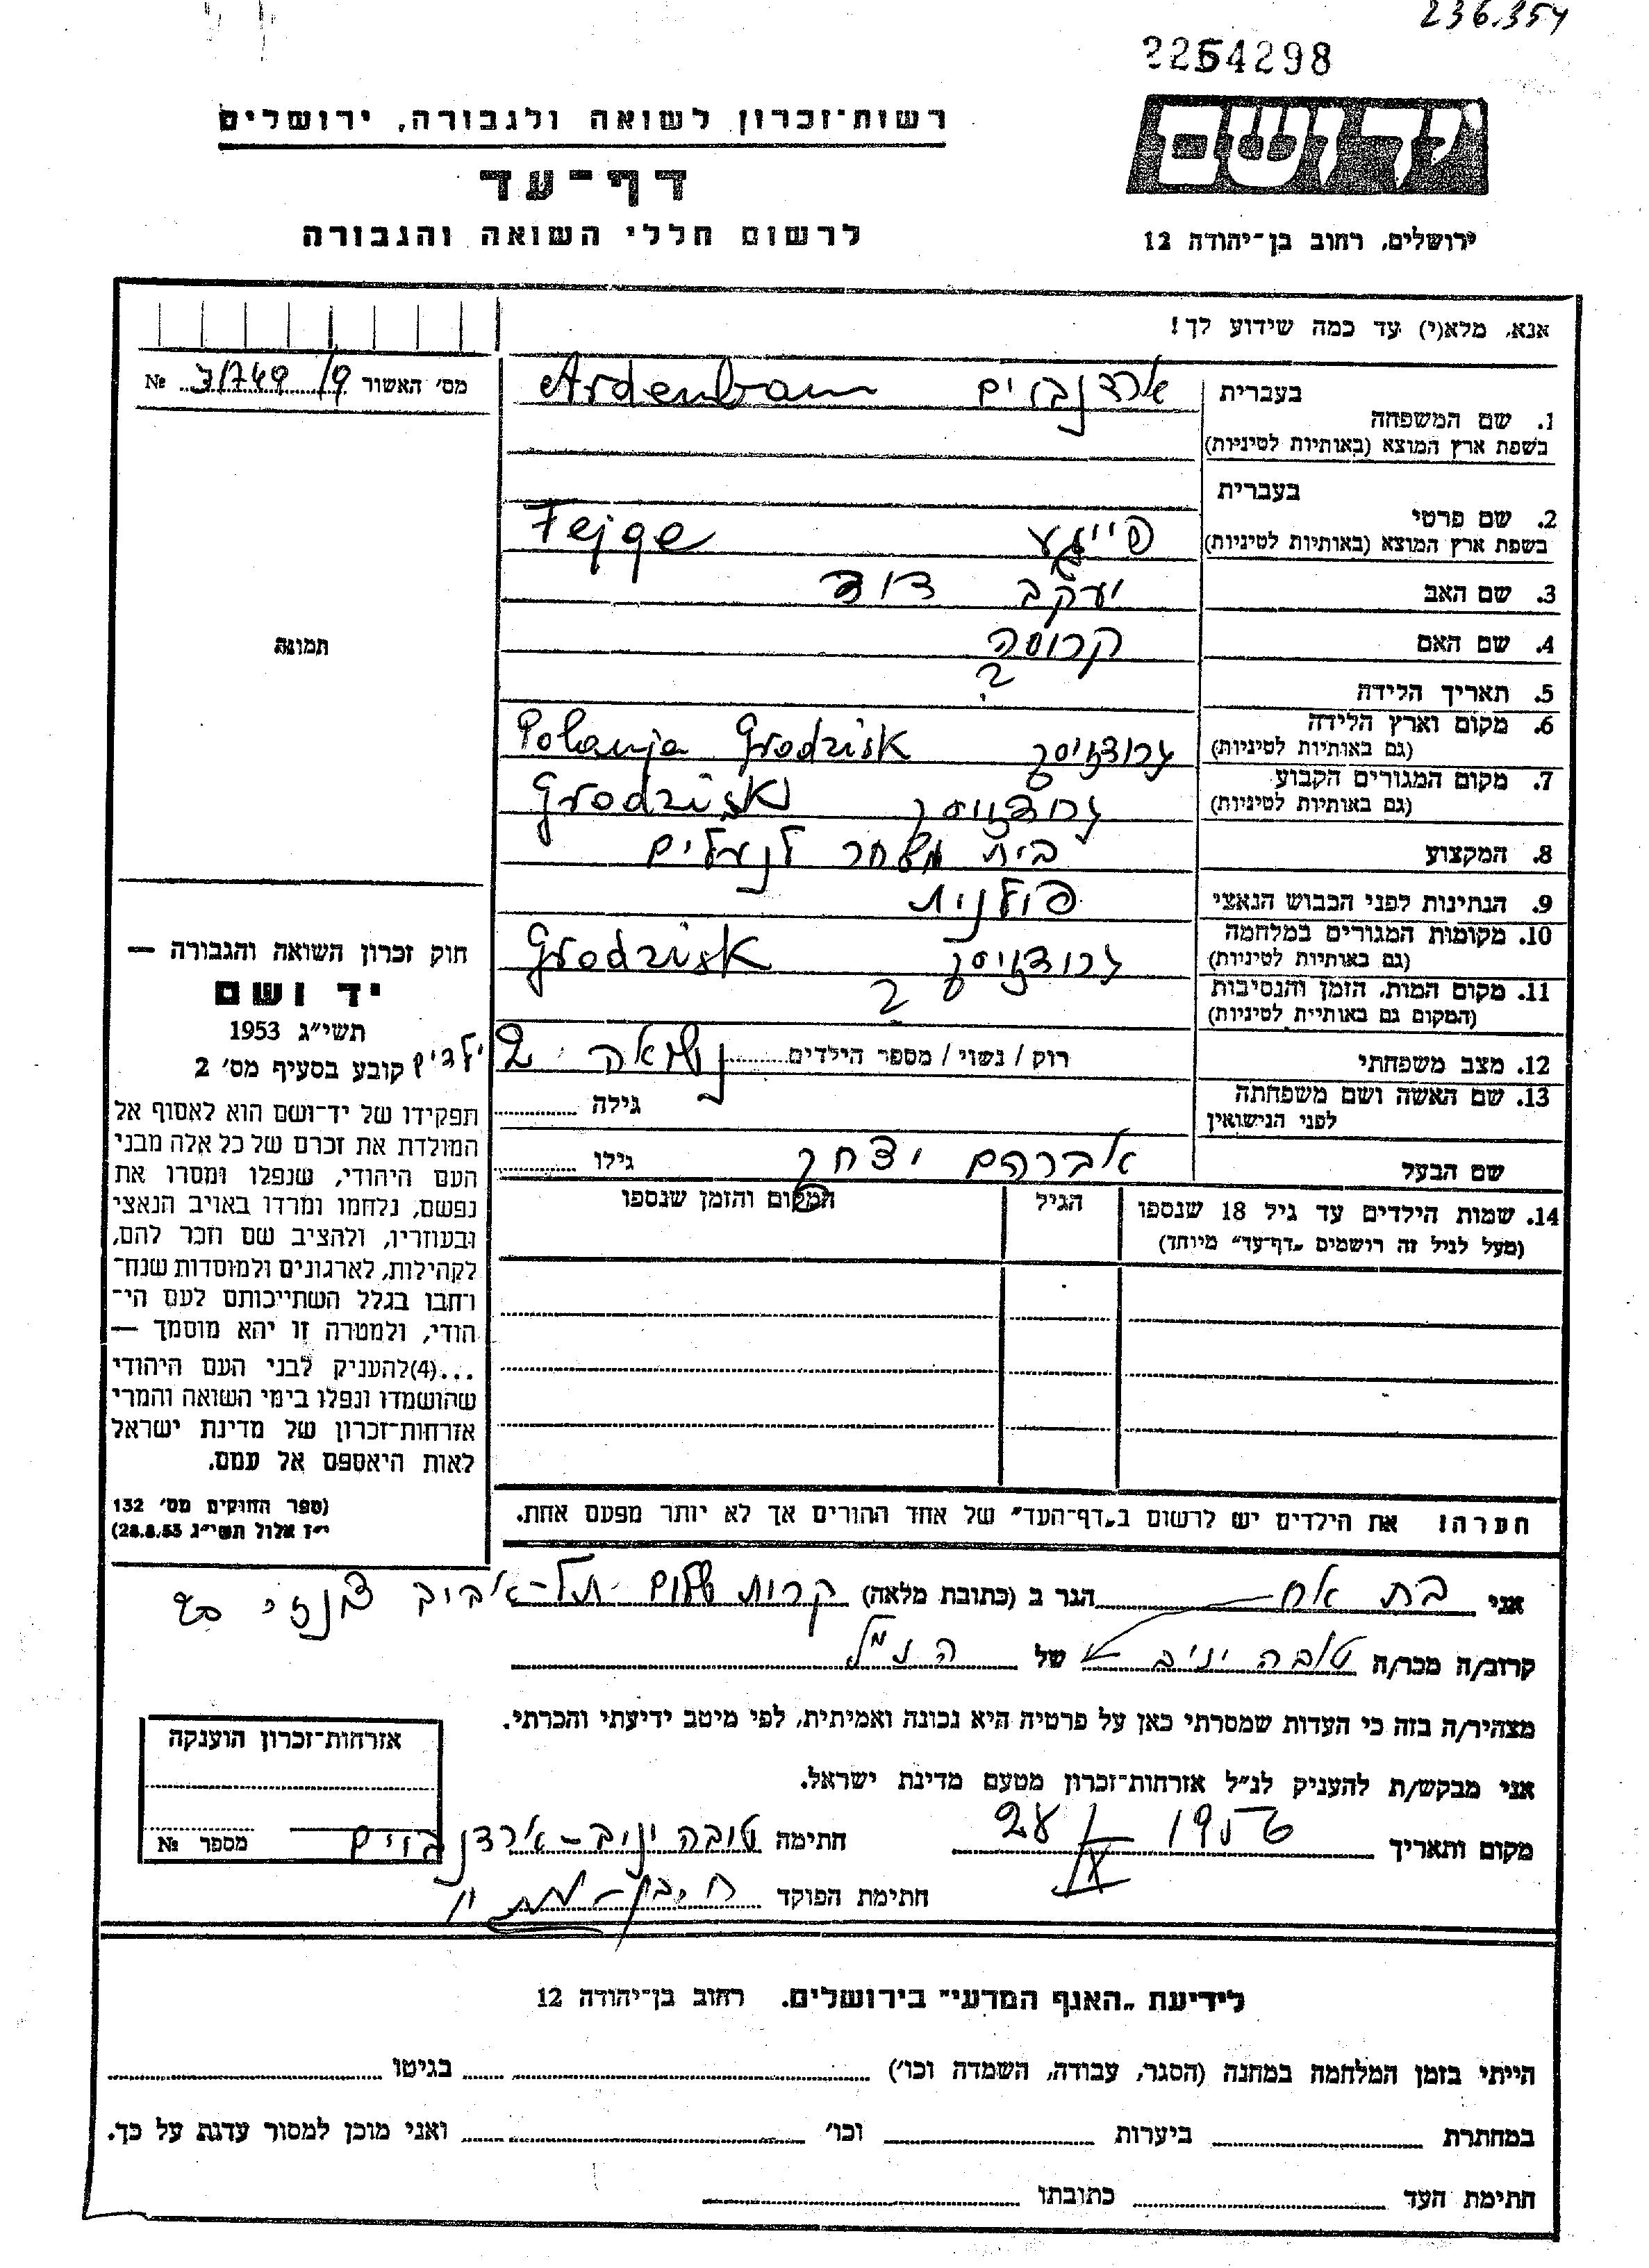 236.354
2254298
יד ושם
רשות־זכרון לשואה ולגבורה, ירושלים
דף־עד
לרשום חללי השואה והגבורה
ירושלים, רחוב בן־יהודה 12
אנא, מלא(י) עד כמה שידוע לך!
מס׳ האשור 3/749/9 №
בעברית ארדנבוים Ardenbaum
1. שם המשפחה
בשפת ארץ המוצא (באותיות לטיניות)
בעברית
2. שם פרטי
בשפת ארץ המוצא (באותיות לטיניות) פייגע Fejge
3. שם האב יעקב דוד
4. שם האם קרוסה
5. תאריך הלידה ?
6. מקום וארץ הלידה
(גם באותיות לטיניות) גרודזיסק Polanja Grodzisk
7. מקום המגורים הקבוע
(גם באותיות לטיניות) גרודזיסק Grodzisk
8. המקצוע בית מסחר לנעלים
9. הנתינות לפני הכבוש הנאצי פולנית
10. מקומות המגורים במלחמה
(גם באותיות לטיניות) גרודזיסק Grodzisk
11. מקום המות, הזמן והנסיבות
(המקום גם באותיית לטיניות) ?
12. מצב משפחתי רוק / נשוי / מספר הילדים נשואה 2 ילדים
13. שם האשה ושם משפחתה
לפני הנישואין גילה
שם הבעל אברהם יצחק גילו
14. שמות הילדים עד גיל 18 שנספו הגיל המקום והזמן שנספו
(מעל לגיל זה רושמים „דף־עד״ מיוחד)
הערה! את הילדים יש לרשום ב„דף־העד״ של אחד ההורים אך לא יותר מפעם אחת.
תמונה
חוק זכרון השואה והגבורה —
יד ושם
תשי״ג 1953
קובע בסעיף מס׳ 2
תפקידו של יד־ושם הוא לאסוף אל
המולדת את זכרם של כל אלה מבני
העם היהודי, שנפלו ומסרו את
נפשם, נלחמו ומרדו באויב הנאצי
ובעוזריו, ולהציב שם וזכר להם,
לקהילות, לארגונים ולמוסדות שנח־
רחבו בגלל השתייכותם לעם הי־
הודי, ולמטרה זו יהא מוסמך —
...(4)להעניק לבני העם היהודי
שהושמדו ונפלו בימי השואה והמרי
אזרחות־זכרון של מדינת ישראל
לאות היאספם אל עמם.
(ספר החוקים מס׳ 132
י״ז אלול תשי״ג 28.8.53)
אני בת אח הגר ב (כתובת מלאה) קרית שלום תל־אביב
קרוב/ה מכר/ה טובה יניב של הנ״ל
מצהיר/ה בזה כי העדות שמסרתי כאן על פרטיה היא נכונה ואמיתית, לפי מיטב ידיעתי והכרתי.
אני מבקש/ת להעניק לנ״ל אזרחות־זכרון מטעם מדינת ישראל.
מקום ותאריך 28 IX 1956 חתימה טובה יניב־ארדנבוים
חתימת הפוקד
אזרחות־זכרון הוענקה
מספר №
לידיעת „האגף המדעי״ בירושלים. רחוב בן־יהודה 12
הייתי בזמן המלחמה במחנה (הסגר, עבודה, השמדה וכו׳) בגיטו
במחתרת ביערות וכו׳ ואני מוכן למסור עדות על כך.
חתימת העד כתובתו